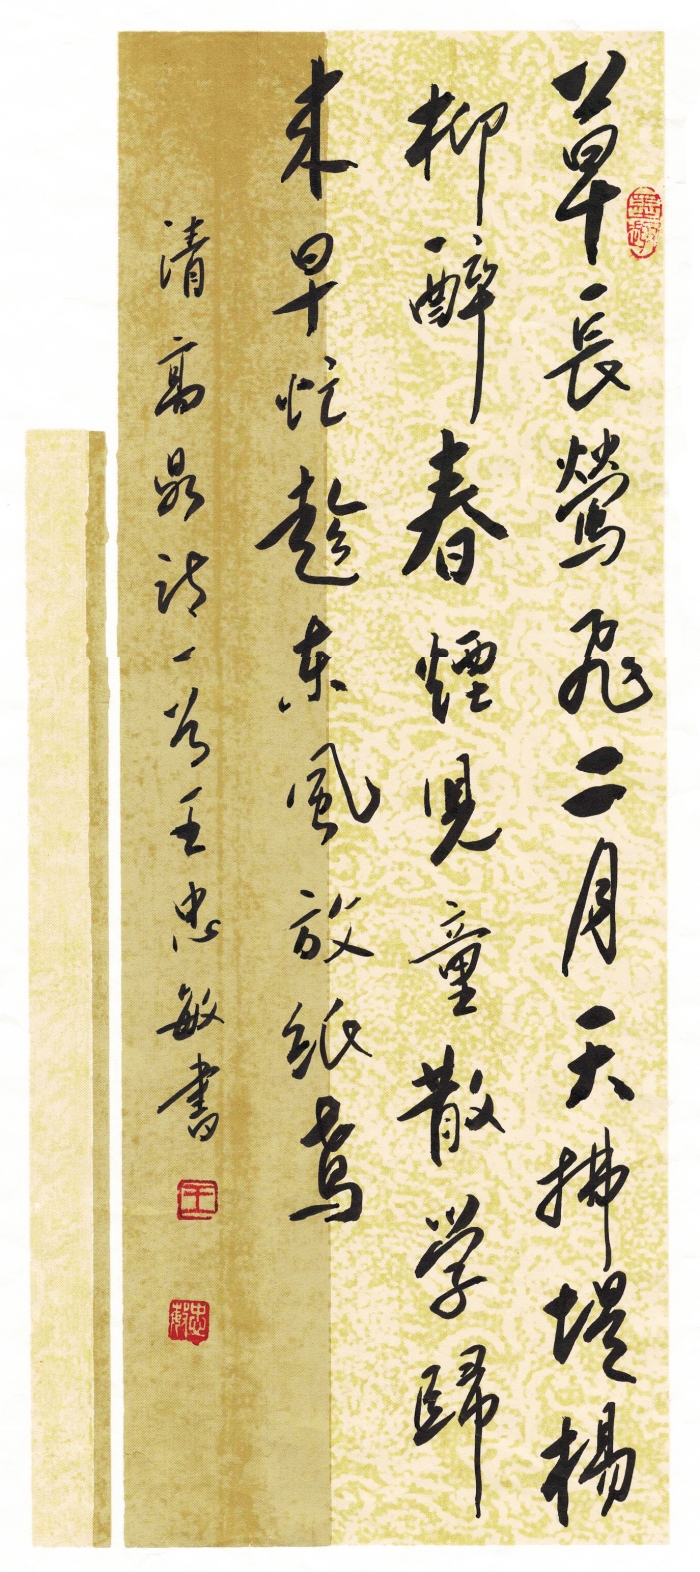 草長鶯飛二月天拂堤楊
柳醉春煙児童散学歸
来早忙趁东風放紙鳶
清高鼎诗一首王忠敏書
王
忠敏